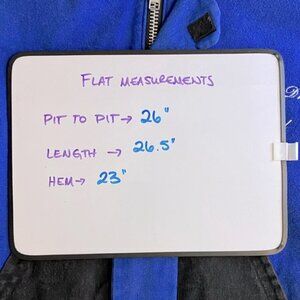 FLAT MEASUREMENTS
PIT TO PIT → 26"
LENGTH → 26.5"
HEM → 23"